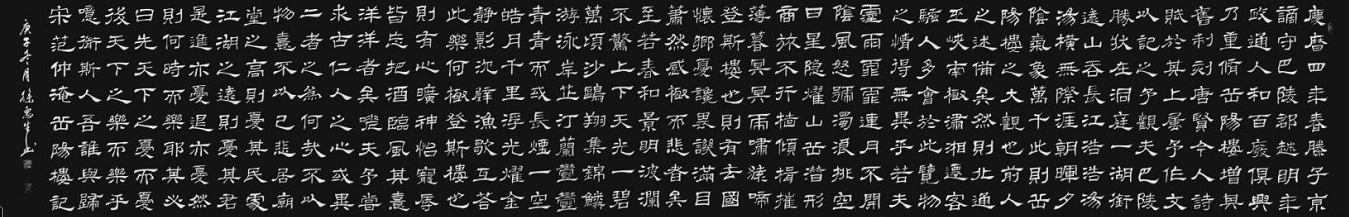 慶曆四年春滕子京
謫守巴陵郡越明年
政通人和百廢俱興
乃重脩岳陽樓增其
舊制刻唐賢今人詩
賦於其上屬予作文
以記之予觀夫巴陵
勝狀在洞庭一湖銜
遠山吞長江浩浩湯
湯橫無際涯朝暉夕
陰氣象萬千此則岳
陽樓之大觀也前人
之述備矣然則北通
巫峽南極瀟湘遷客
騷人多會於此覽物
之情得無異乎若夫
霪雨霏霏連月不開
陰風怒號濁浪排空
日星隱耀山岳潛形
商旅不行檣傾楫摧
薄暮冥冥虎嘯猿啼
登斯樓也則有去國
懷鄉憂讒畏譏滿目
蕭然感極而悲者矣
至若春和景明波瀾
不驚上下天光一碧
萬頃沙鷗翔集錦鱗
游泳岸芷汀蘭鬱鬱
青青而或長煙一空
皓月千里浮光耀金
靜影沉璧漁歌互答
此樂何極登斯樓也
則有心曠神怡寵辱
皆忘把酒臨風其喜
洋洋者矣嗟夫予嘗
求古仁人之心或異
二者之為何哉不以
物喜不以己悲居廟
堂之高則憂其民處
江湖之遠則憂其君
是進亦憂退亦憂然
則何時而樂耶其必
曰先天下之憂而憂
後天下之樂而樂乎
噫微斯人吾誰與歸
宋范仲淹岳陽樓記
庚子冬月徐生书